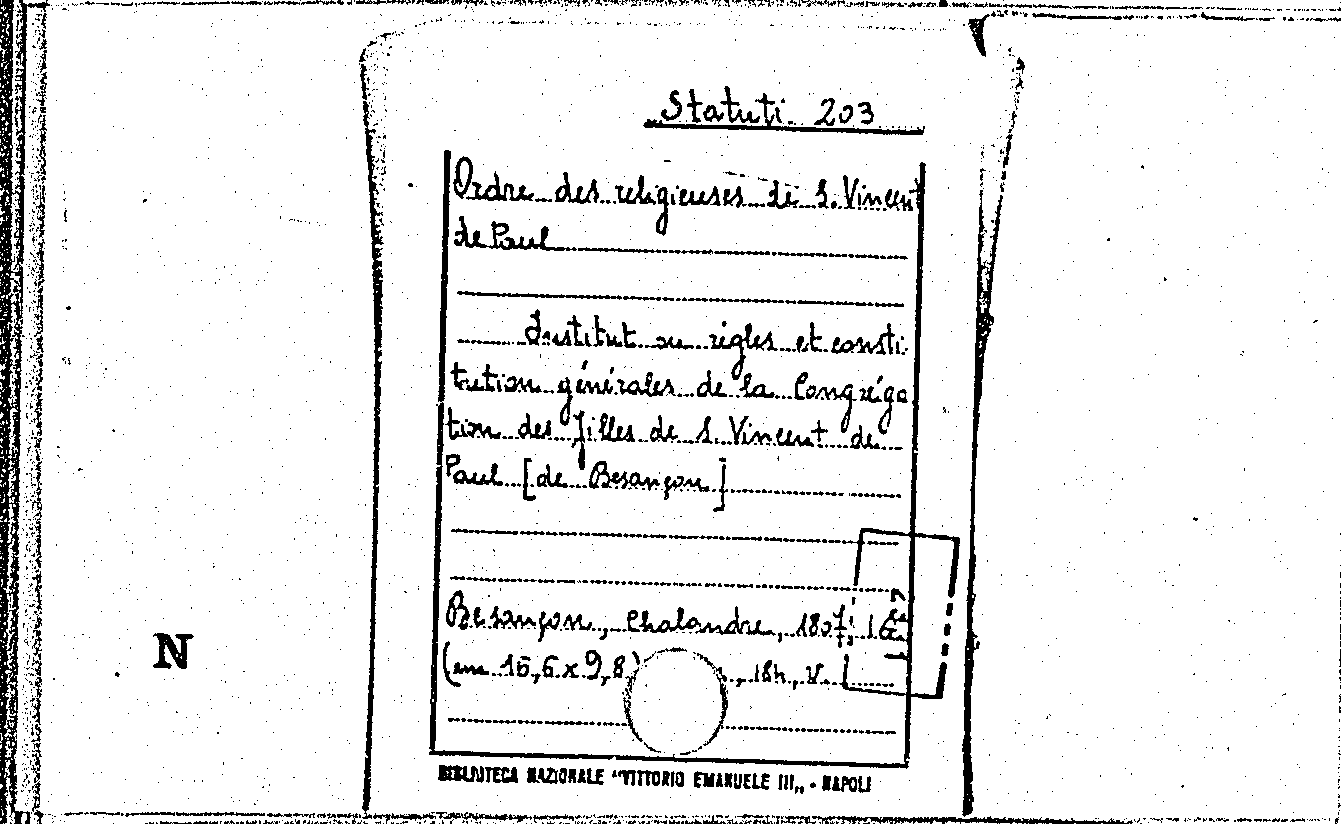 Statuti 203
Ordre des religieuses de S. Vincent
de Paul
Institut ou règles et consti-
tution générales de la Congréga
tion des filles de S. Vincent de
Paul [de Besançon]
Besançon, Chalandre, 1807;
(cm 16,6 x 9,8) , 184, V.
N
BIBLIOTECA NAZIONALE "VITTORIO EMANUELE III„ - NAPOLI